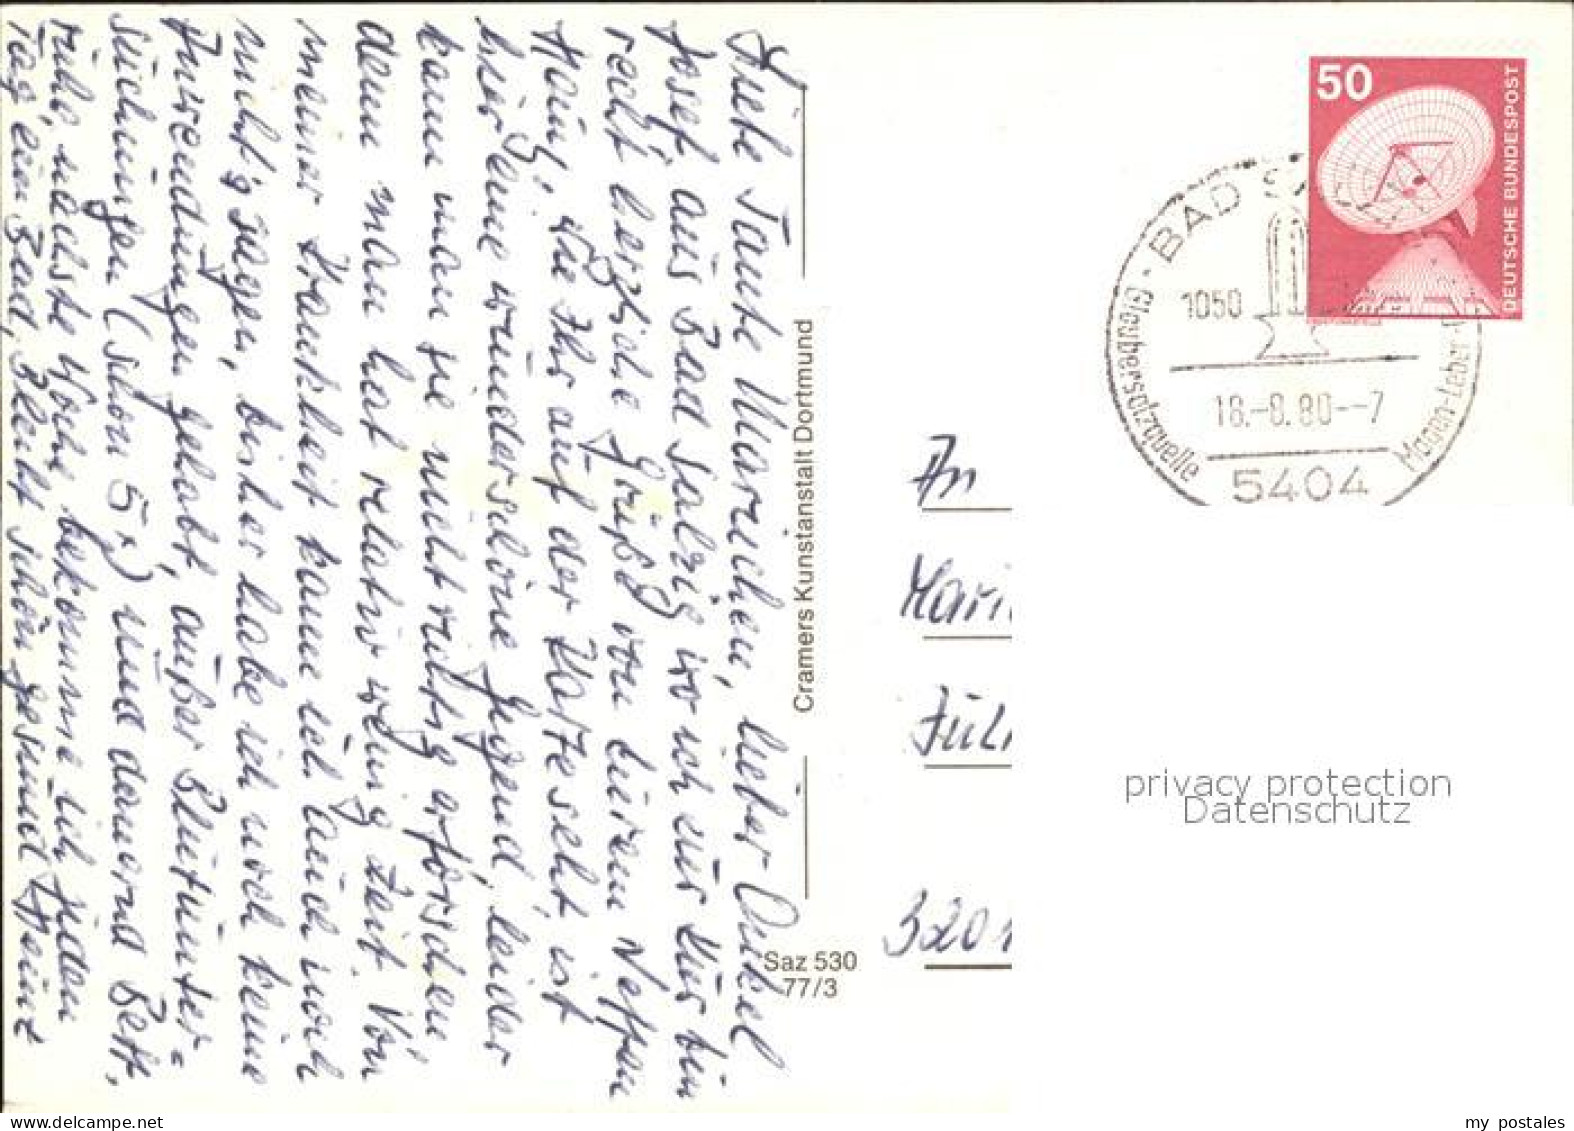 Liebe Tante Mariechen, lieber Onkel
Josef aus Bad Salzig wo ich zur Kur bin
recht herzliche Grüße von Eurem Neffen
Heinz, wie Ihr auf der Karte seht, ist
hier eine wunderschöne Gegend, leider
kann man sie nicht richtig erforschen,
denn man hat relativ wenig Zeit. Von
meiner Krankheit kann ich auch noch
nicht's sagen, bisher habe ich noch keine
Anwendungen gehabt, außer Blutunter=
suchungen (schon 5x) und dauernd Bett,
ruhe, nächste Woche bekomme ich jeden
Tag ein Bad, Bleibt schön gesund Heinz
Cramers Kunstanstalt Dortmund
Saz 530
77/3
50
DEUTSCHE BUNDESPOST
BAD
1050
Glaubersalzquelle
18.-8.80--7
Magen-Leber
5404
An
Mari
Juli
3201
privacy protection
Datenschutz
my postales